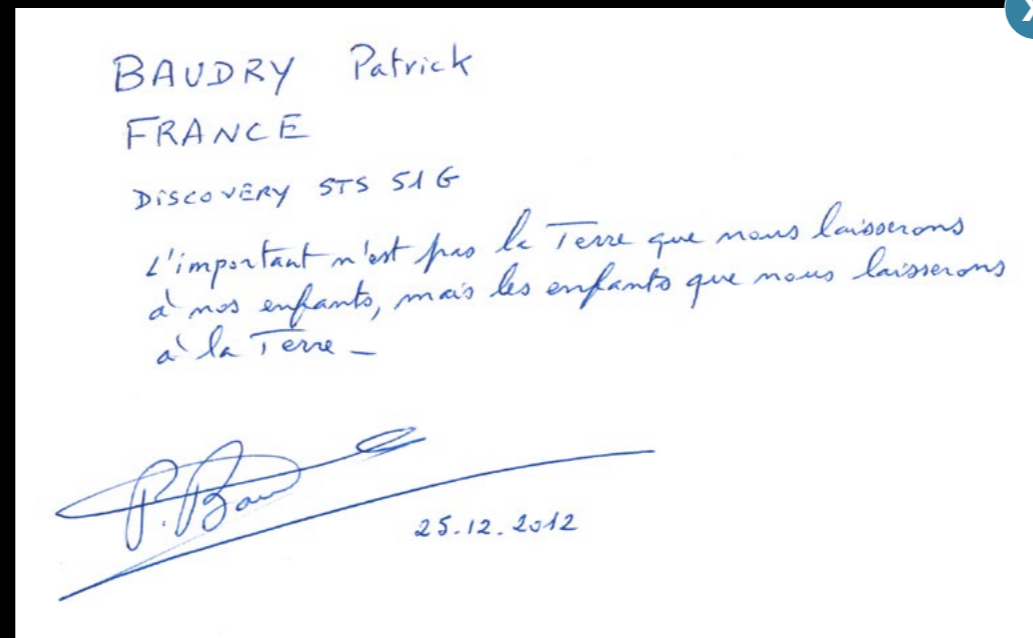 BAUDRY Patrick
FRANCE
DISCOVERY STS 51 G
L'important n'est pas la Terre que nous laisserons
à nos enfants, mais les enfants que nous laisserons
à la Terre _
P. Bau
25.12.2012